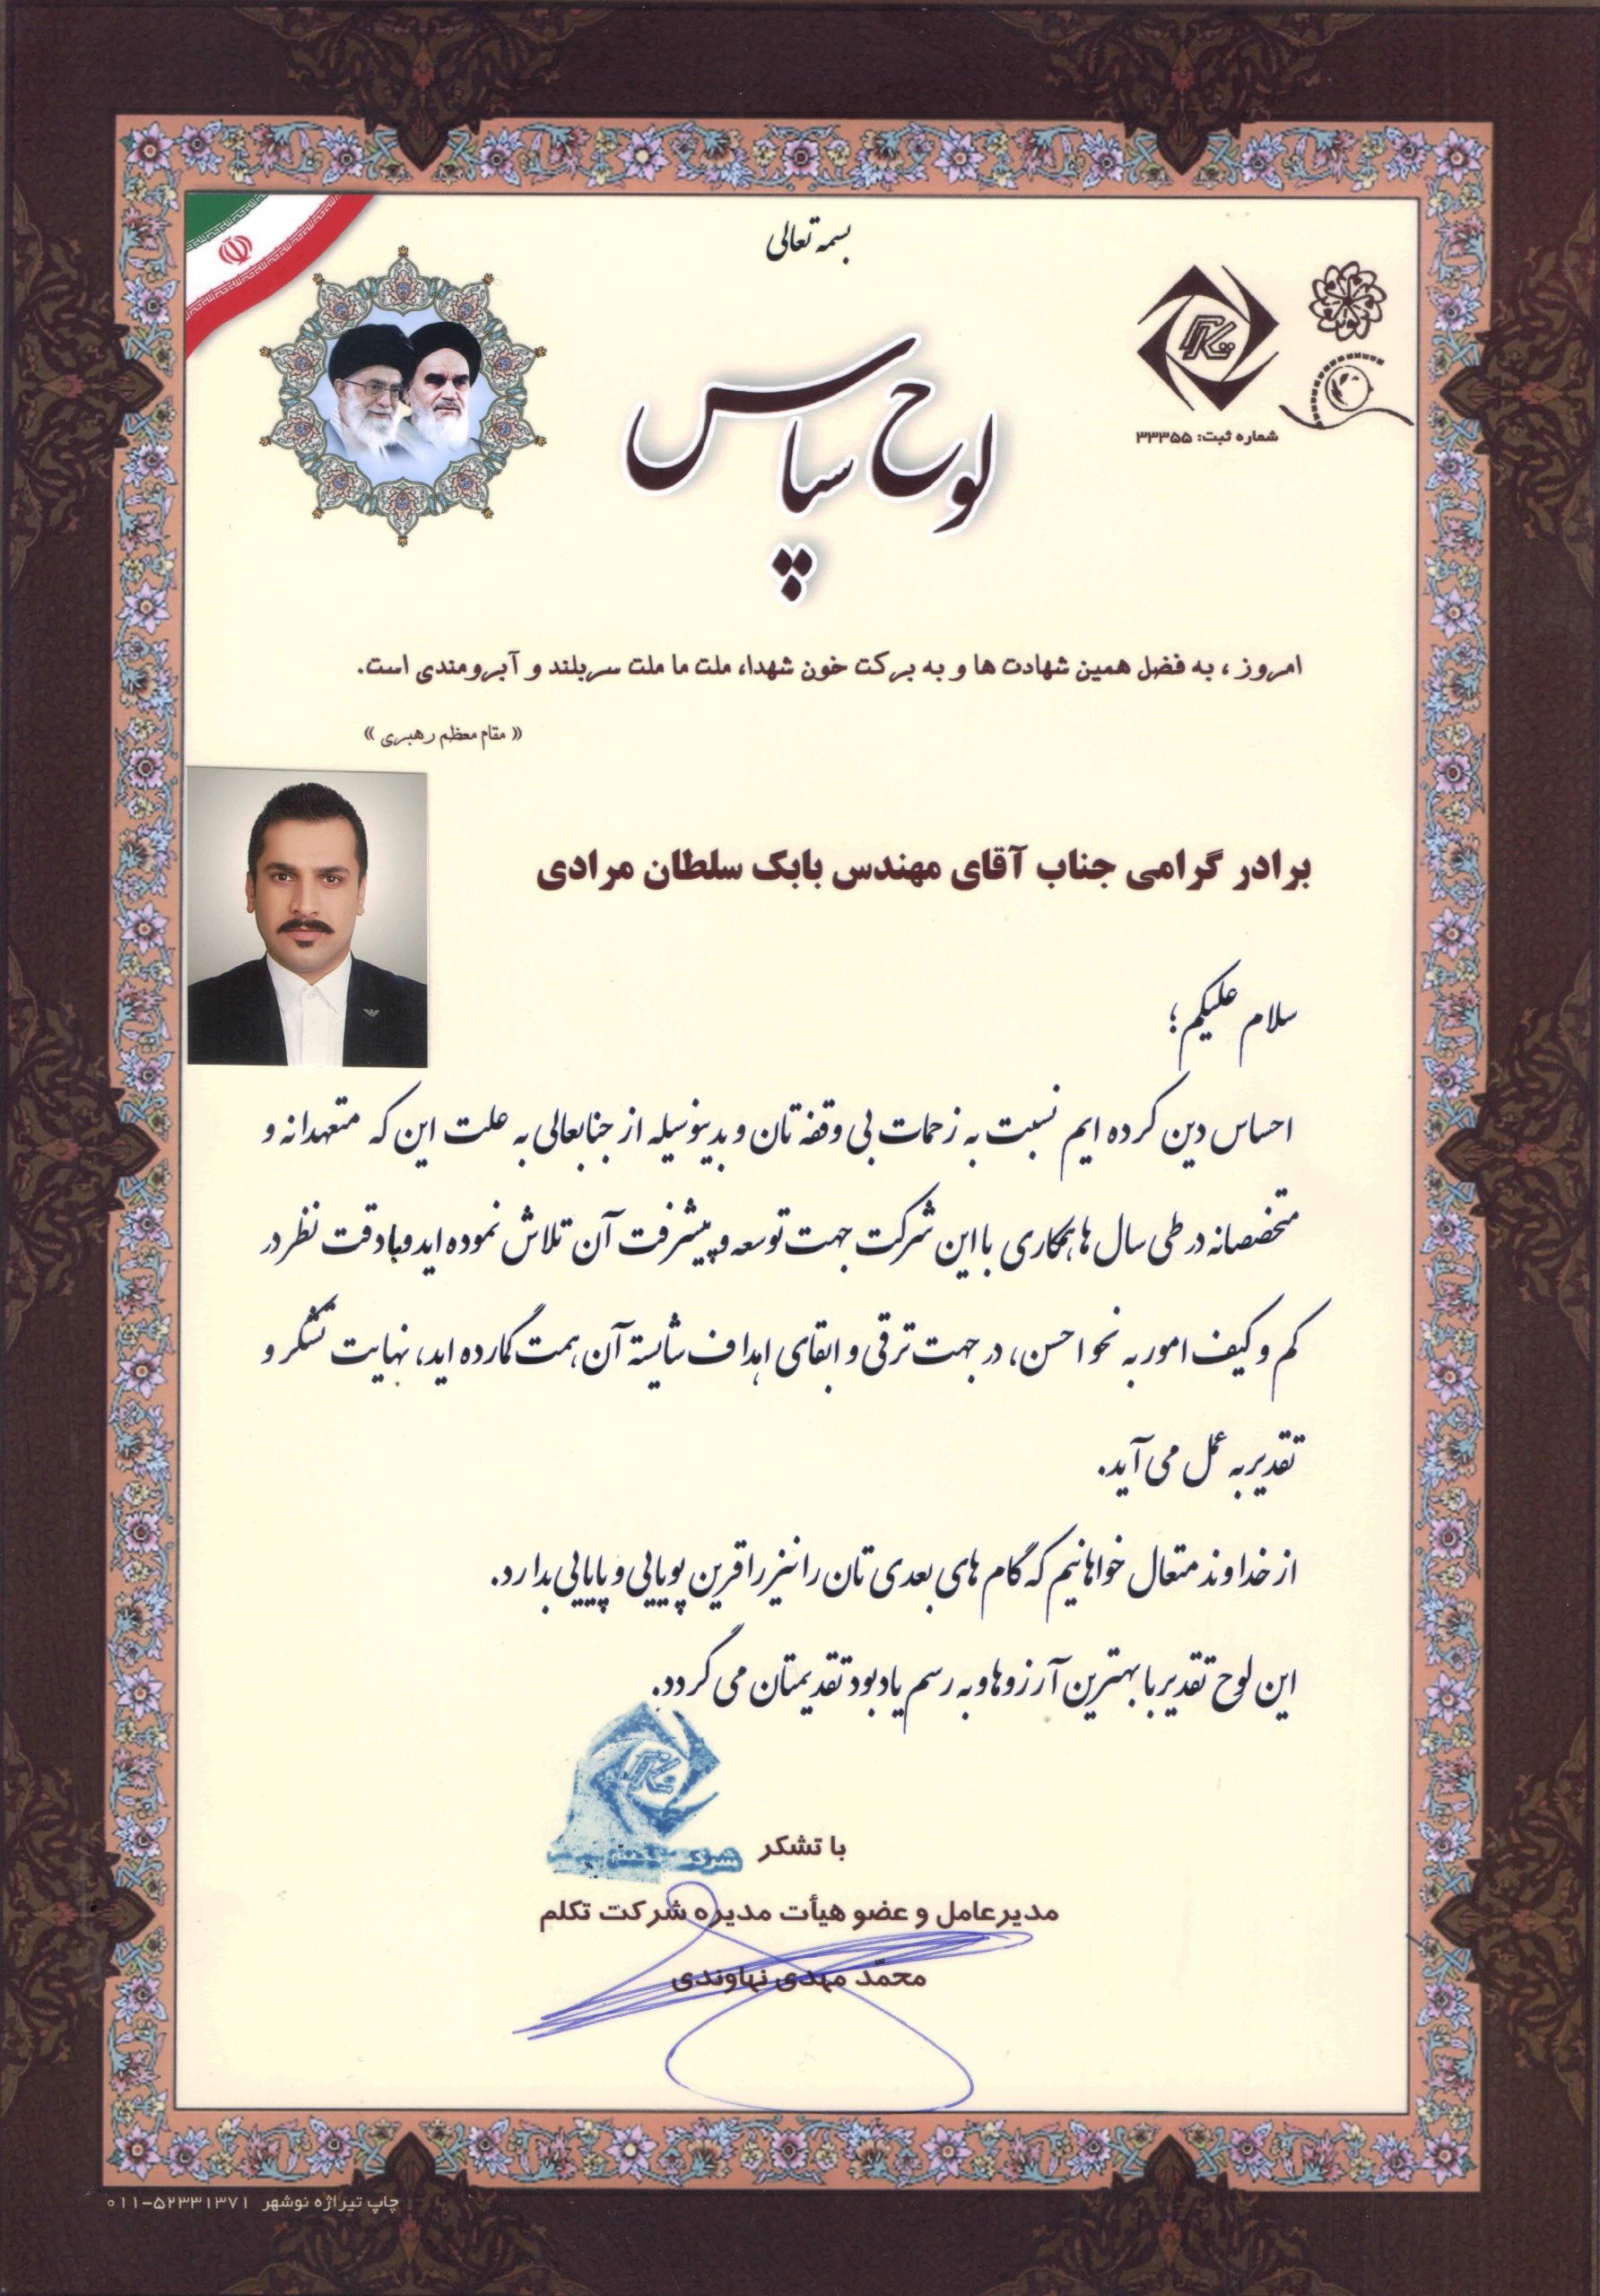 بسمه تعالی
لوح سپاس
شماره ثبت: ۳۳۳۵۵
امروز ، به فضل همین شهادت ها و به برکت خون شهدا، ملت ما ملت سربلند و آبرومندی است.
« مقام معظم رهبری »
برادر گرامی جناب آقای مهندس بابک سلطان مرادی
سلام علیکم ؛
احساس دین کرده ایم نسبت به زحمات بی وقفه تان و بدینوسیله از جنابعالی به علت این که متعهدانه و
متخصصانه در طی سال ها همکاری با این شرکت جهت توسعه و پیشرفت آن تلاش نموده اید و با دقت نظر در
کم و کیف امور به نحو احسن، در جهت ترقی و ابقای اهداف شایسته آن همت گمارده اید، نهایت تشکر و
تقدیر به عمل می آید.
از خداوند متعال خواهانیم که گام های بعدی تان را نیز را قرین پویایی و پایایی بدارد.
این لوح تقدیر با بهترین آرزوها و به رسم یادبود تقدیمتان می گردد.
با تشکر
شرکت
مدیرعامل و عضو هیأت مدیره شرکت تکلم
محمّد مهدی نهاوندی
چاپ تیراژه نوشهر ۵۲۳۳۱۳۷۱-۰۱۱